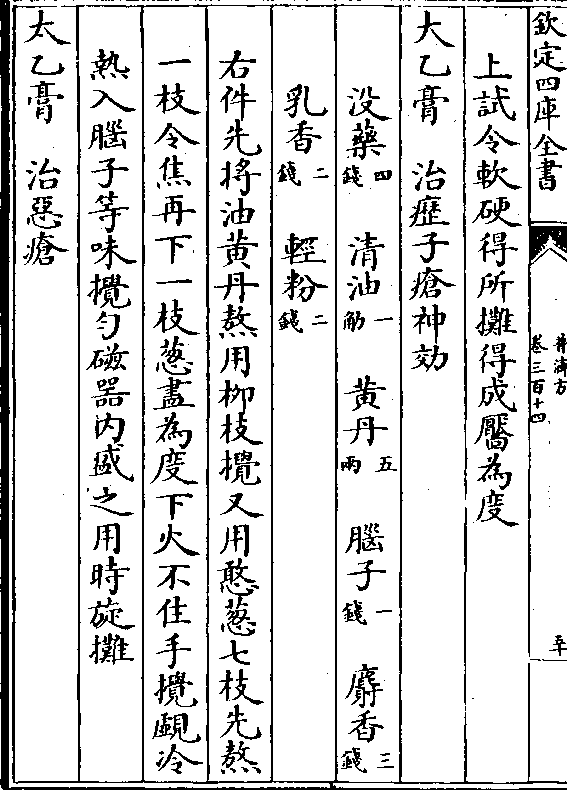 欽定四庫全書
普濟方
卷三百十四
五十
上試令軟硬得所攤得成靨為度
太乙膏　治癧子瘡神効
没藥四錢　清油一觔　黄丹五兩　腦子一錢　麝香三錢
乳香二錢　輕粉二錢
右件先將油黄丹熬用柳枝攪又用憨葱七枝先熬
一枝令焦再下一枝葱盡為度下火不住手攪覷冷
熱入腦子等味攪勻磁器内盛之用時旋攤
太乙膏　治惡瘡